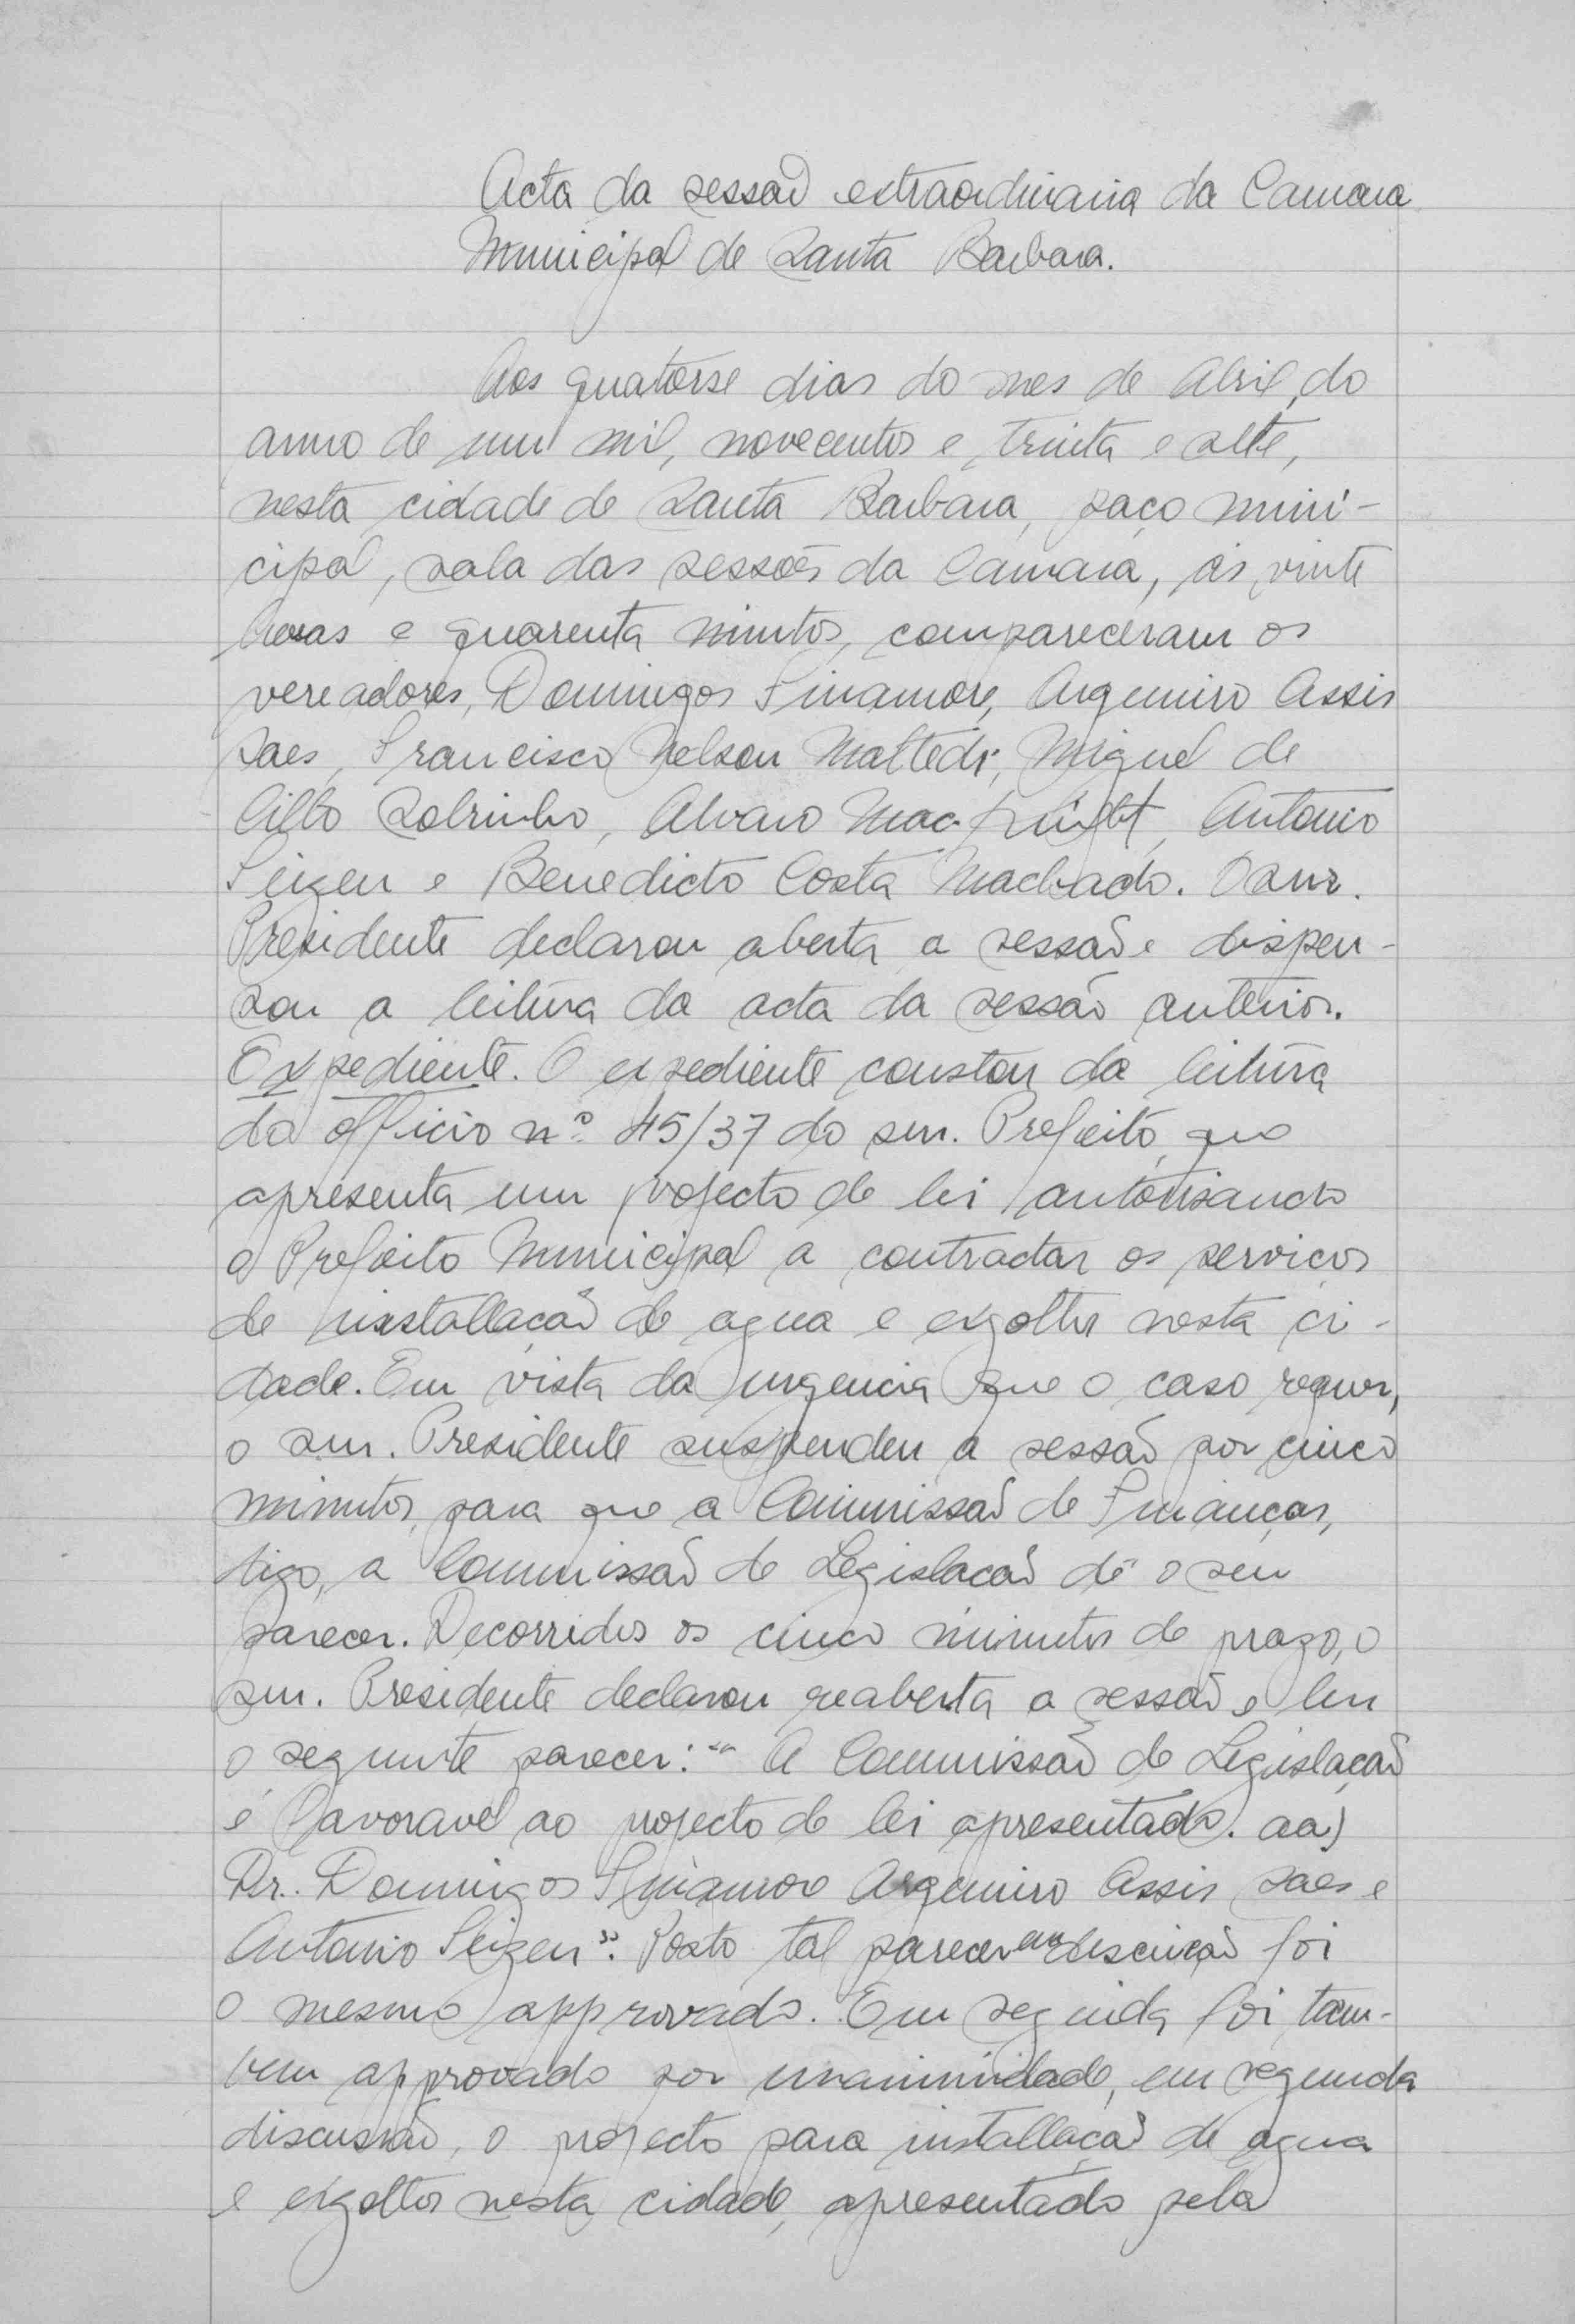 Acta da sessão extraordinaria da Camara
Municipal de Santa Barbara.
Aos quatorse dias do mes de Abril, do
anno de um mil, novecentos e trinta e sette,
nesta cidade de Santa Barbara, paço muni-
cipal, sala das sessões da Camara, ás vinte
horas e quarenta minutos, compareceram os
vereadores, Domingos Finamore, Argemiro Assis
Saes, Francisco Nelson Maltedi, Miguel de
Cillo Sobrinho, Alvaro Mac-Knight, Antonio
e Benedicto Costa Machado. O snr.
Presidente declarou aberta a sessão e dispen-
sou a leitura da acta da sessão anterior.
Expediente. O expediente constou da leitura
do officio nº 45/37 do snr. Prefeito, que
apresenta um projecto de lei autorisando
o Prefeito Municipal a contractar os serviços
de installação de agua e exgottos nesta ci-
dade. Em vista da urgencia que o caso requer,
o snr. Presidente suspendeu a sessão por cinco
minutos, para que a Commissão de Finanças,
digo, a Commissão de Legislacão dê o seu
parecer. Decorridos os cinco minutos de prazo, o
snr. Presidente declarou reaberta a sessão e leu
o seguinte parecer: "A Commissão de Legislação
é favoravel ao projecto de lei apresentado. aa)
Dr. Domingos Finamore Argemiro Assis Saes e
Antonio ". Posto tal parecer em discução foi
o mesmo approvado. Em seguida foi tam-
bem approvado por unanimidade, em segunda
discussão, o projecto para installação de agua
e exgottos nesta cidade, apresentado pela